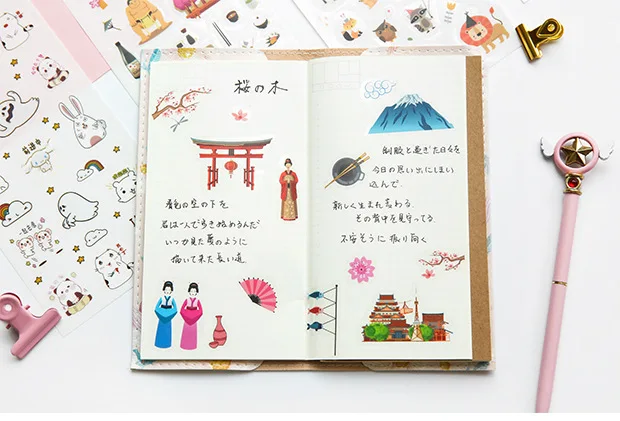 桜の木
春色の空の下を
君は一人で歩き始めるんだ
いつか見た夢のように
描いて来た長い道
制服と過ぎた日々を
今日の思い出にしまい
込んで
新しく生まれ変わる
その背中を見守ってる
不安そうに振り向く